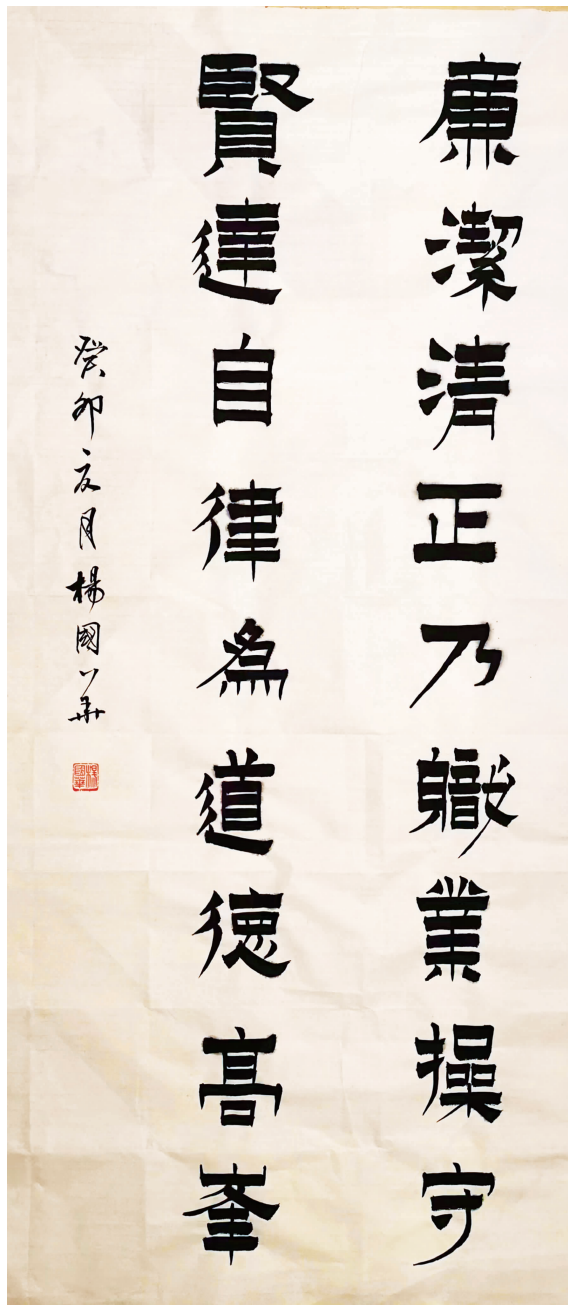 廉潔清正乃職業操守
賢達自律為道德高峯
癸卯亥月楊國華
楊國華